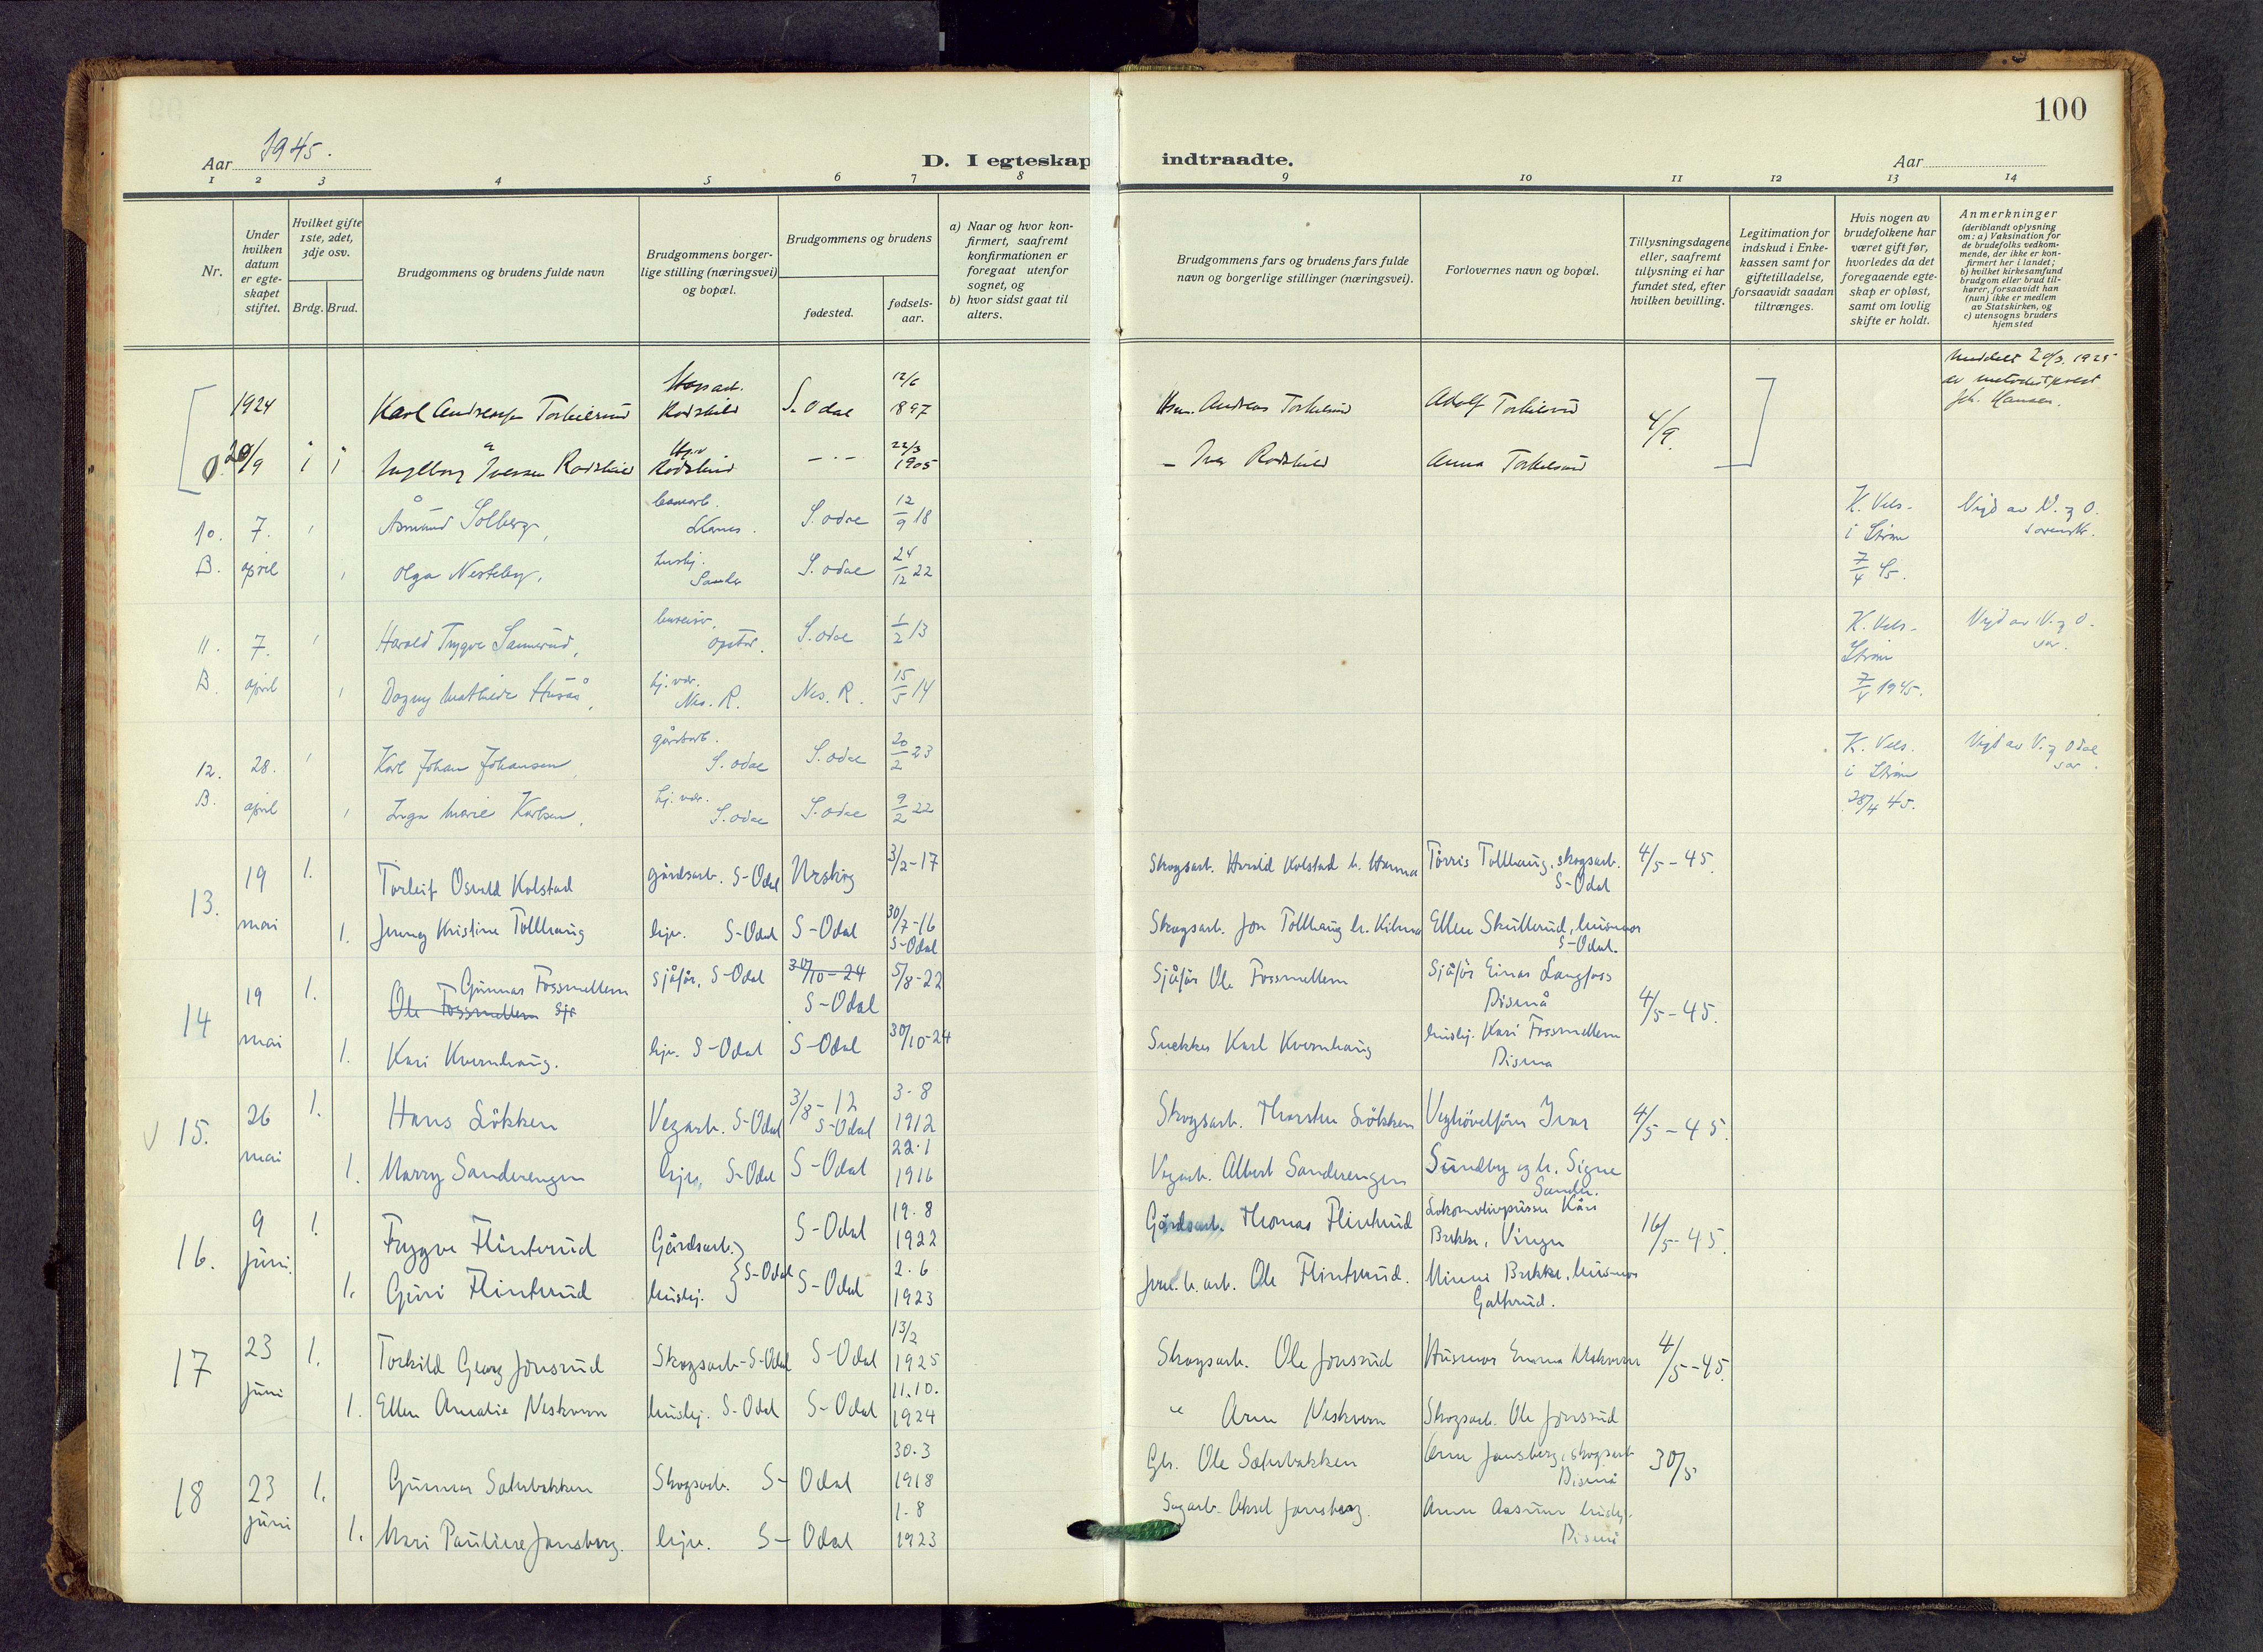 100
Aar 1945.
D. I egteskap indtraadte.
Aar
1 2 3 4 5 6 7 8 9 10 11 12 13 14
Nr.
Under hvilken datum er egte-skapet stiftet.
Hvilket gifte 1ste, 2det, 3dje osv.
Brdg. Brud.
Brudgommens og brudens fulde navn
Brudgommens borger-lige stilling (næringsvei) og bopæl.
Brudgommens og brudens
fødested.
fødsels-aar.
a) Naar og hvor kon-firmert, saafremt konfirmationen er foregaat utenfor sognet, og
b) hvor sidst gaat til alters.
Brudgommens fars og brudens fars fulde navn og borgerlige stillinger (næringsvei).
Forlovernes navn og bopæl.
Tillysningsdagene eller, saafremt tillysning ei har fundet sted, efter hvilken bevilling.
Legitimation for indskud i Enke-kassen samt for giftetilladelse, forsaavidt saadan tiltrænges.
Hvis nogen av brudefolkene har været gift før, hvorledes da det foregaaende egte-skap er opløst, samt om lovlig skifte er holdt.
Anmerkninger (deriblandt oplysning om: a) Vaksination for de brudefolks vedkom-mende, der ikke er kon-firmert her i landet; b) hvilket kirkesamfund brudgom eller brud til-hører, forsaavidt han (hun) ikke er medlem av Statskirken, og c) utensogns bruders hjemsted
1924 Karl Andreassen Torkilsrud Rodskild S. Odal 12/6 1897 Andreas Torkilsrud Adolf Torkilsrud 4/9
20/9 1 1 Ingeborg Iversen Rodskild Rodskild 22/3 1905 Iver Rodskild Anna Torkilsrud
10. B. 7. april Åsmund Solberg, Skarnes. S. odal 12/9 18 K. Vels. i Strøm 7/4 45. Vigd av V. og O.
Olga Nesteby, Sander S. odal 24/12 22
11. B. 7. april Harald Trygve Sannerud, S. odal 1/2 13 K. Vels. Strøm 7/4 1945. Vigd av V. og O.
Dagny Mathilde Husås, hj. vær. Nes. R. Nes. R. 15/5 14
12. B. 28. april Karl Johan Johansen, gårdarb. S. odal S. odal 20/2 23 K. Vels. i Strøm 28/4 45. Vigd av V. og Odal
Inga Marie Karlsen, hj. vær. S. odal S. odal 9/2 22
13. 19 mai 1. Torleif Osvald Kolstad gårdsarb. S-Odal Urskog 3/2-17 Skogsarb. Harald Kolstad Torris Tollhaug, skogsarb. S-Odal 4/5-45.
1. Jenny Kristine Tollhaug hjv. S-Odal S-Odal 30/7-16 S-Odal Skogsarb. Jon Tollhaug Ellen Skullerud, husmor S-Odal.
14 19 mai 1. Gunnar Fossmellem Ole Fossmellem Sjf sjåfør, S-Odal 30/10-24 S-Odal 5/8-22 Sjåfør Ole Fossmellem Sjåfør Einar Langfoss Disenå 4/5-45.
1. Kari Kvernhaug. hjv. S-Odal S-Odal 30/10-24 Snekker Karl Kvernhaug huslj. Kari Fossmellem Disenå
15. 26 mai 1. Hans Løkken Vegarb. S-Odal 3/8-12 S-Odal 3-8 1912 Skogsarb. Thorsten Løkken Veghøvelfører Ivar 4/5-45.
1. Marry Sanderengen hjv. S-Odal S-Odal 22.1 1916 Vegarb. Albert Sanderengen Sundby og h. Signe Sander.
16. 9 juni. 1. Trygve Flintrud Gårdsarb. S-Odal S-Odal 19.8 1922 Gårdsarb. Thomas Flintrud Lokomotivpusser Kåre Bekke, Vinger 16/5-45.
1. Guri Flintrud huslj. S-Odal 2.6 1923 Ole Flintrud. Minni Bekke, husmor Galterud.
17 23 juni 1. Torkild Georg Jonsrud Skogsarb. S-Odal S-Odal 13/2 1925 Skogsarb. Ole Jonsrud Husmor Emma Neskvern 4/5-45.
1. Ellen Amalie Neskvern huslj. S-Odal S-Odal 11.10. 1924 " Arne Neskvern Skogsarb. Ole Jonsrud
18 23 juni 1. Gunnar Sæterbakken Skogsarb. S-Odal 30.3 1918 Gbr. Ole Sæterbakken Arne Jansberg, skogsarb. Disenå 30/5
1. Mari Pauline Jansberg. hjv. S-Odal 1.8 1923 Sagarb. Aksel Jansberg. Disenå